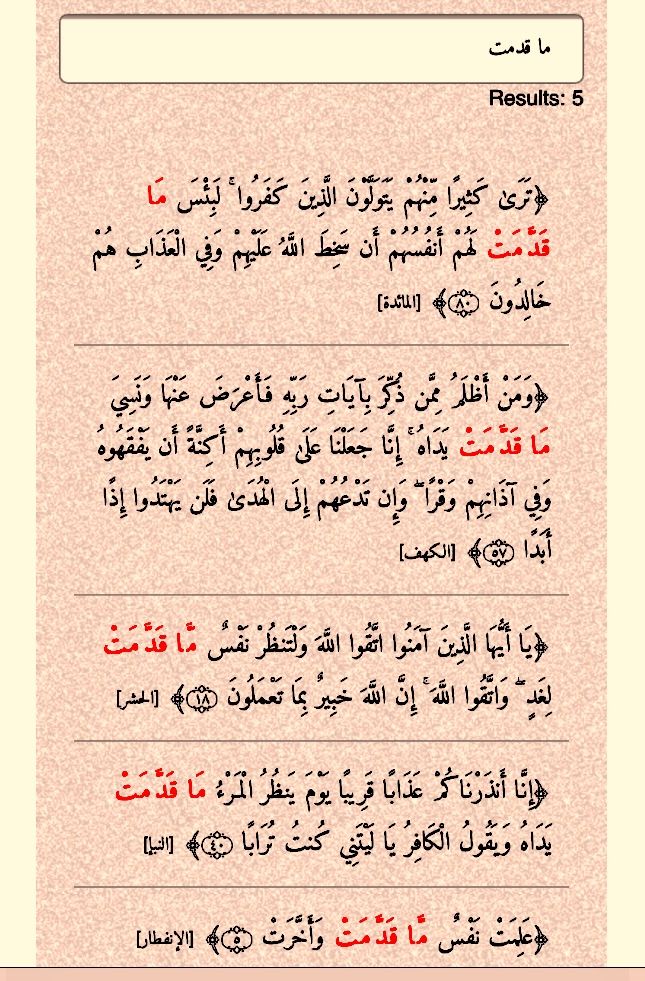 ما قدمت
Results: 5
﴿تَرَىٰ كَثِيرًا مِّنْهُمْ يَتَوَلَّوْنَ الَّذِينَ كَفَرُوا ۚ لَبِئْسَ مَا
قَدَّمَتْ لَهُمْ أَنفُسُهُمْ أَن سَخِطَ اللَّهُ عَلَيْهِمْ وَفِي الْعَذَابِ هُمْ
خَالِدُونَ ‎﴿٨٠﴾‏ [المائدة]
﴿وَمَنْ أَظْلَمُ مِمَّن ذُكِّرَ بِآيَاتِ رَبِّهِ فَأَعْرَضَ عَنْهَا وَنَسِيَ
مَا قَدَّمَتْ يَدَاهُ ۚ إِنَّا جَعَلْنَا عَلَىٰ قُلُوبِهِمْ أَكِنَّةً أَن يَفْقَهُوهُ
وَفِي آذَانِهِمْ وَقْرًا ۖ وَإِن تَدْعُهُمْ إِلَى الْهُدَىٰ فَلَن يَهْتَدُوا إِذًا
أَبَدًا ٥٧﴾ [الكهف]
﴿يَا أَيُّهَا الَّذِينَ آمَنُوا اتَّقُوا اللَّهَ وَلْتَنظُرْ نَفْسٌ مَّا قَدَّمَتْ
لِغَدٍ ۖ وَاتَّقُوا اللَّهَ ۚ إِنَّ اللَّهَ خَبِيرٌ بِمَا تَعْمَلُونَ ١٨﴾ [الحشر]
﴿إِنَّا أَنذَرْنَاكُمْ عَذَابًا قَرِيبًا يَوْمَ يَنظُرُ الْمَرْءُ مَا قَدَّمَتْ
يَدَاهُ وَيَقُولُ الْكَافِرُ يَا لَيْتَنِي كُنتُ تُرَابًا ٤٠﴾ [النبإ]
﴿عَلِمَتْ نَفْسٌ مَّا قَدَّمَتْ وَأَخَّرَتْ ٥﴾ [الإنفطار]